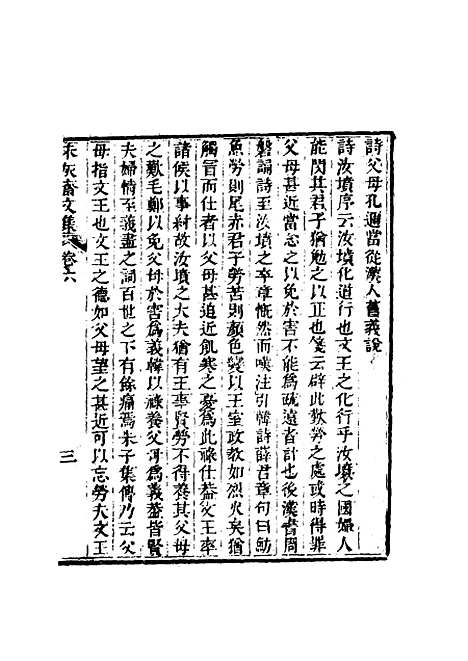 詩父母孔邇當從漢人舊義說
詩汝墳序云汝墳化道行也文王之化行乎汝墳之國婦人
能閔其君子猶勉之以正也箋云辟此勤勞之處或時得罪
父母甚近當念之以免於害不能為疏遠者計也後漢書周
磐誦詩至汝墳之卒章慨然而嘆注引韓詩薛君章句曰魴
魚勞則尾赤君子勞苦則顏色變以王室政教如烈火矣猶
觸冒而仕者以父母甚迫近飢寒之憂為此祿仕蓋文王率
諸侯以事紂故汝墳之大夫猶有王事賢勞不得養其父母
之歎毛鄭以免父母於害為義韓以祿養父母為義蓋皆賢
夫婦情至義盡之詞百世之下有餘痛焉朱子集傳乃云父
母指文王也文王之德如父母望之甚近可以忘勞夫文王
未灰齋文集 卷六 三